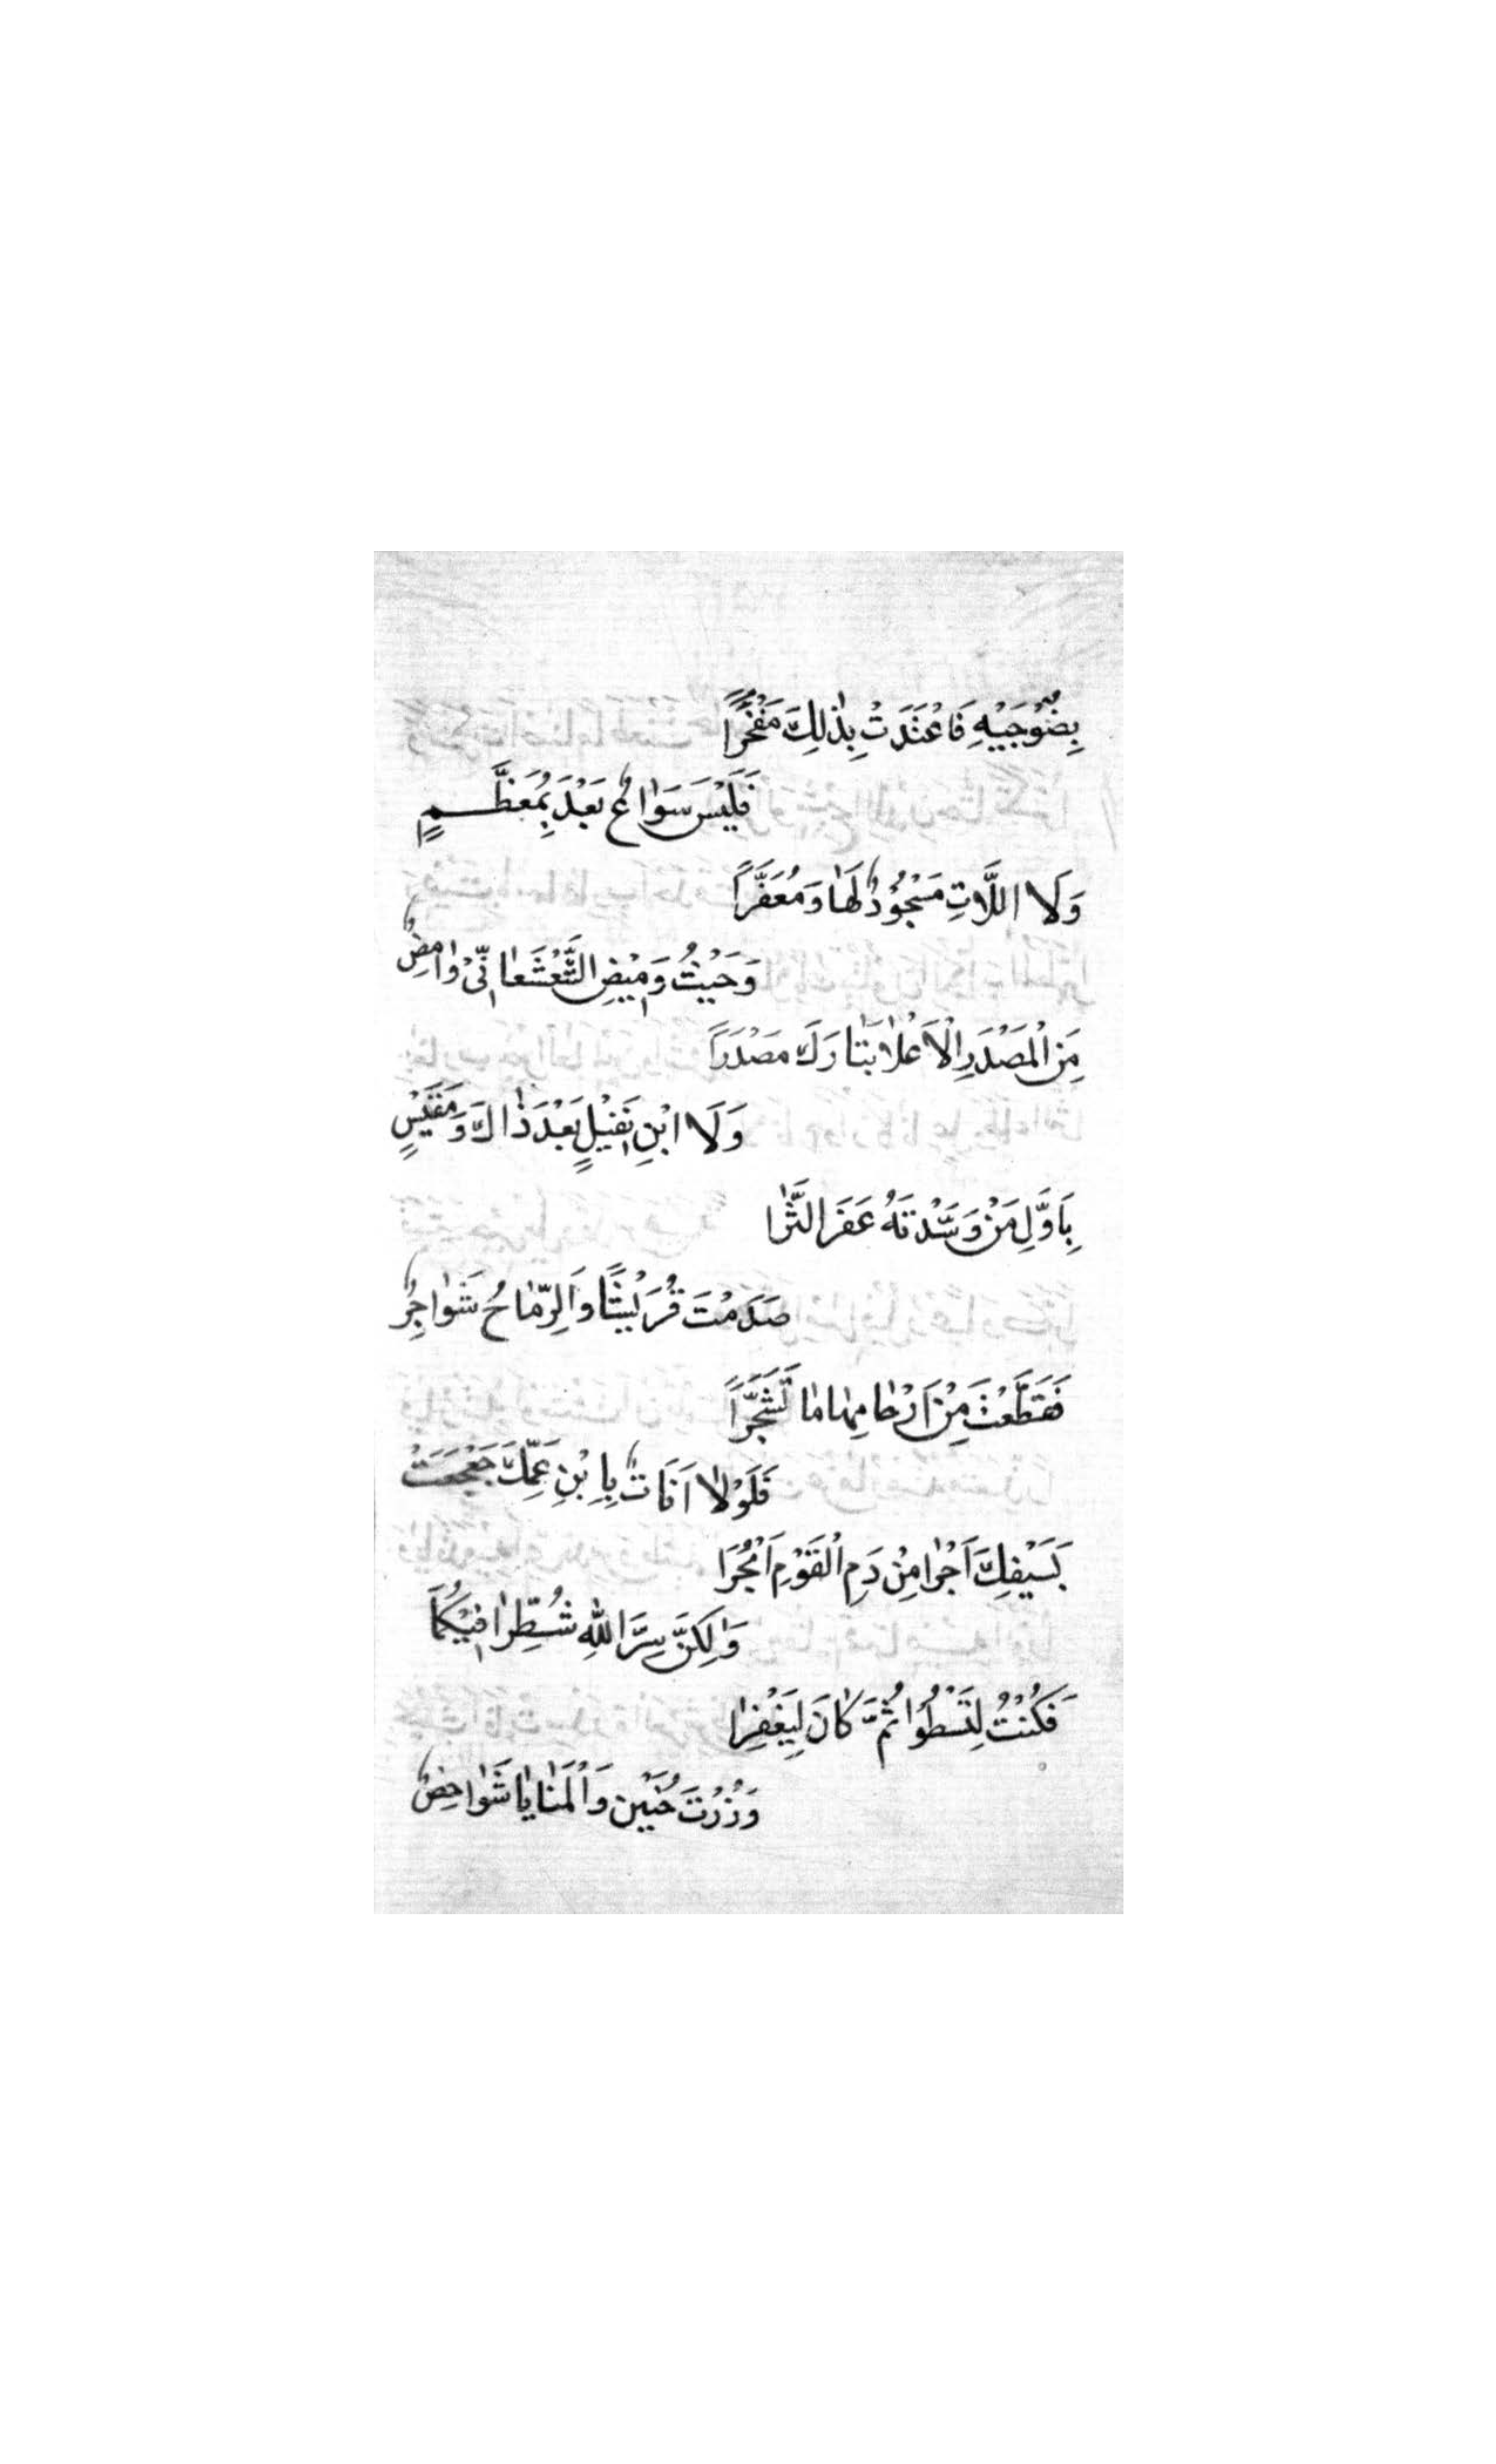 بِضَوْجَيْهِ فَاعْتَدَتْ بِذٰلِكَ مَفْخَرًا
فَلَيْسَ سَوٰاعٌ بَعْدَ بِمُعَظَّمٍ
وَلَا اللَّاتِ مَسْجُوْدٌ لَهٰا وَمُعَفَّرًا
وَمِيْضِ وٰامِضٌ
مِنَ الْمَصْدَرِ الْاَعْلٰا تَبٰارَكَ مَصْدَرًا
وَلَا ابْنِ نُفَيْلٍ بَعْدَ ذٰاكَ وَمَقْيَسٍ
بِاَوَّلِ مَنْ وَسَّدْتَهُ عَفَرَ الثَّرٰا
صَدَمْتَ قُرَيْشًا وَالرِّمٰاحُ شَوٰاجِرٌ
فَقَطَّعْتَ مِنْ اَرْحٰامِهٰا مٰا تَشَجَّرًا
فَلَوْلٰا اَنَاتٌ بِابْنِ عَمِّكَ جَعْجَعَتْ
بِسَيْفِكَ اَجْرٰا مِنْ دَمِ الْقَوْمِ اَبْحُرَا
وَلٰكِنَّ سِرَّ اللّٰهِ شُطِّرٰا فِيْكُمَا
فَكُنْتُ لِتَسْطُوْا ثُمَّ كٰانَ لِيَغْفِرٰا
وَزُرْتَ حُنَيْن وَالْمَنٰايٰا شَوٰاخِصٌ